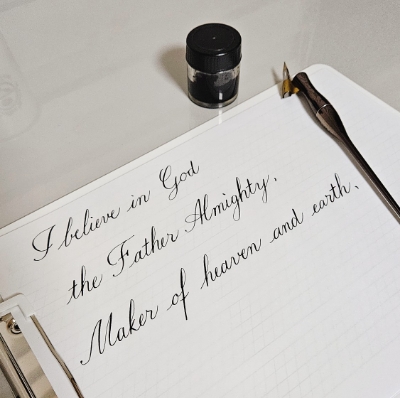 I believe in God
the Father Almighty,
Maker of heaven and earth,